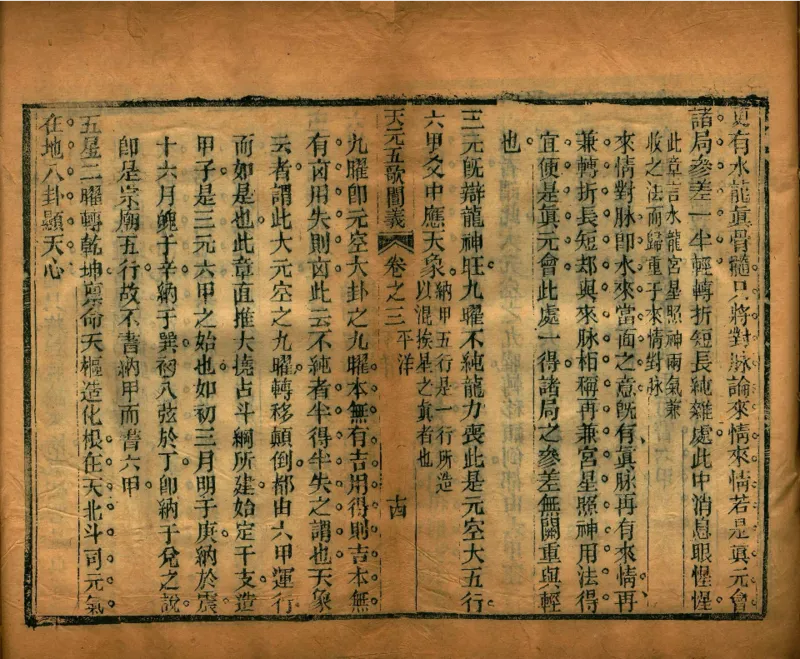 更有水龍眞骨髓只將對脉論來情來情若是眞元會
諸局參差一半輕轉折短長純雜處此中消息眼惺惺
此章言水龍宮星照神兩氣兼
收之法而歸重于來情對脉
來情對脉即水來當面之意旣有眞脉再有來情再
兼轉折長短却與來脉柘稱再兼宮星照神用法得
宜便是眞元會此處一得諸局之參差無關重與輕
也
三元旣辯龍神旺九曜不純龍力喪此是元空大五行
六甲爻中應天象納甲五行是一行所造
以混挨星之眞者也
天元五歌闡義 卷之三 平洋 十四
九曜卽元空大卦之九曜本無有吉用得則吉本無
有凶用失則凶此云不純者半得半失之謂也天象
云者謂此大元空之九曜轉移顛倒都由六甲運行
而如是也此章直推大撓占斗綱所建始定干支造
甲子是三元六甲之始也如初三月明于庚納於震
十六月魄于辛納于巽初八弦於丁卽納于兌之說
卽是宗廟五行故不書納甲而書六甲
五星二曜轉乾坤眞命天樞造化根在天北斗司元氣
在地八卦顯天心